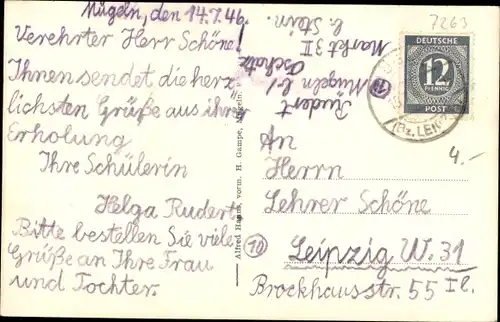 Mügeln, den 14.7.46
Verehrter Herr Schöne!
Ihnen sendet die herz-
lichsten Grüße aus ihrer
Erholung
Ihre Schülerin
Helga Rudert.
Bitte bestellen Sie viele
Grüße an Ihre Frau
und Tochter.
Rudert
Mügeln b/
Oschatz
Markt 3 II
b. Stein.
Alfred H. vorm. H. Gampe, Mügeln
7263
DEUTSCHE
12
PFENNIG
POST
(Bz. LEIPZ
4.-
10
An
Herrn
Lehrer Schöne
10
Leipzig W. 31
Brockhausstr. 55 II.